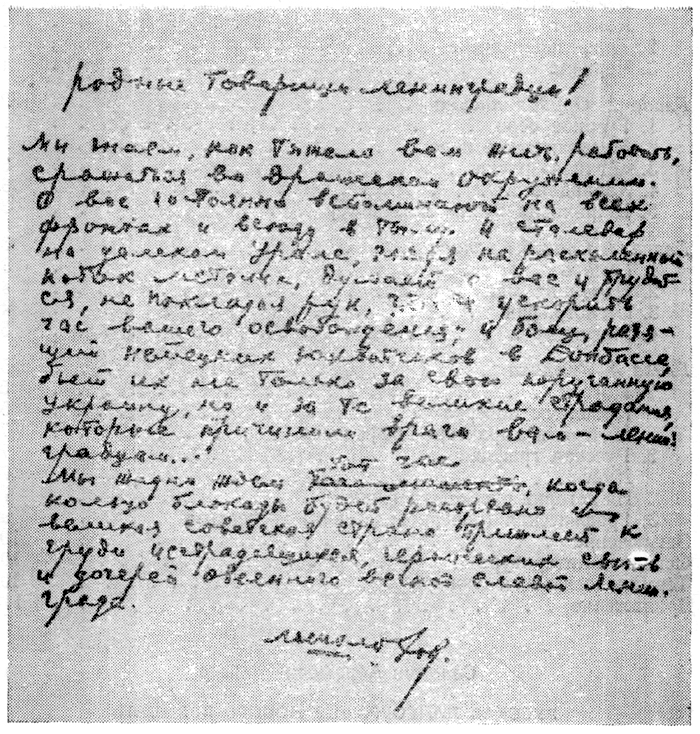 Родные товарищи ленинградцы!
Мы знаем, как тяжело вам жить, работать,
сражаться во вражеском окружении.
О вас постоянно вспоминают на всех
фронтах и всюду в тылу. И сталевар
на далеком Урале, глядя на раскаленный
поток металла, думает о вас и трудит-
ся, не покладая рук, чтобы ускорить
час вашего освобождения, и боец, разя-
щий немецких захватчиков в Донбассе,
бьет их не только за свою поруганную
Украину, но и за те великие страдания,
которые причинили враги вам – ленин-
градцам...
тот час
Мы жадно ждем, когда
кольцо блокады будет разорвано и
великая советская страна прижмет к
груди исстрадавшихся, героических сынов
и дочерей овеянного вечной славой Ленин-
града.